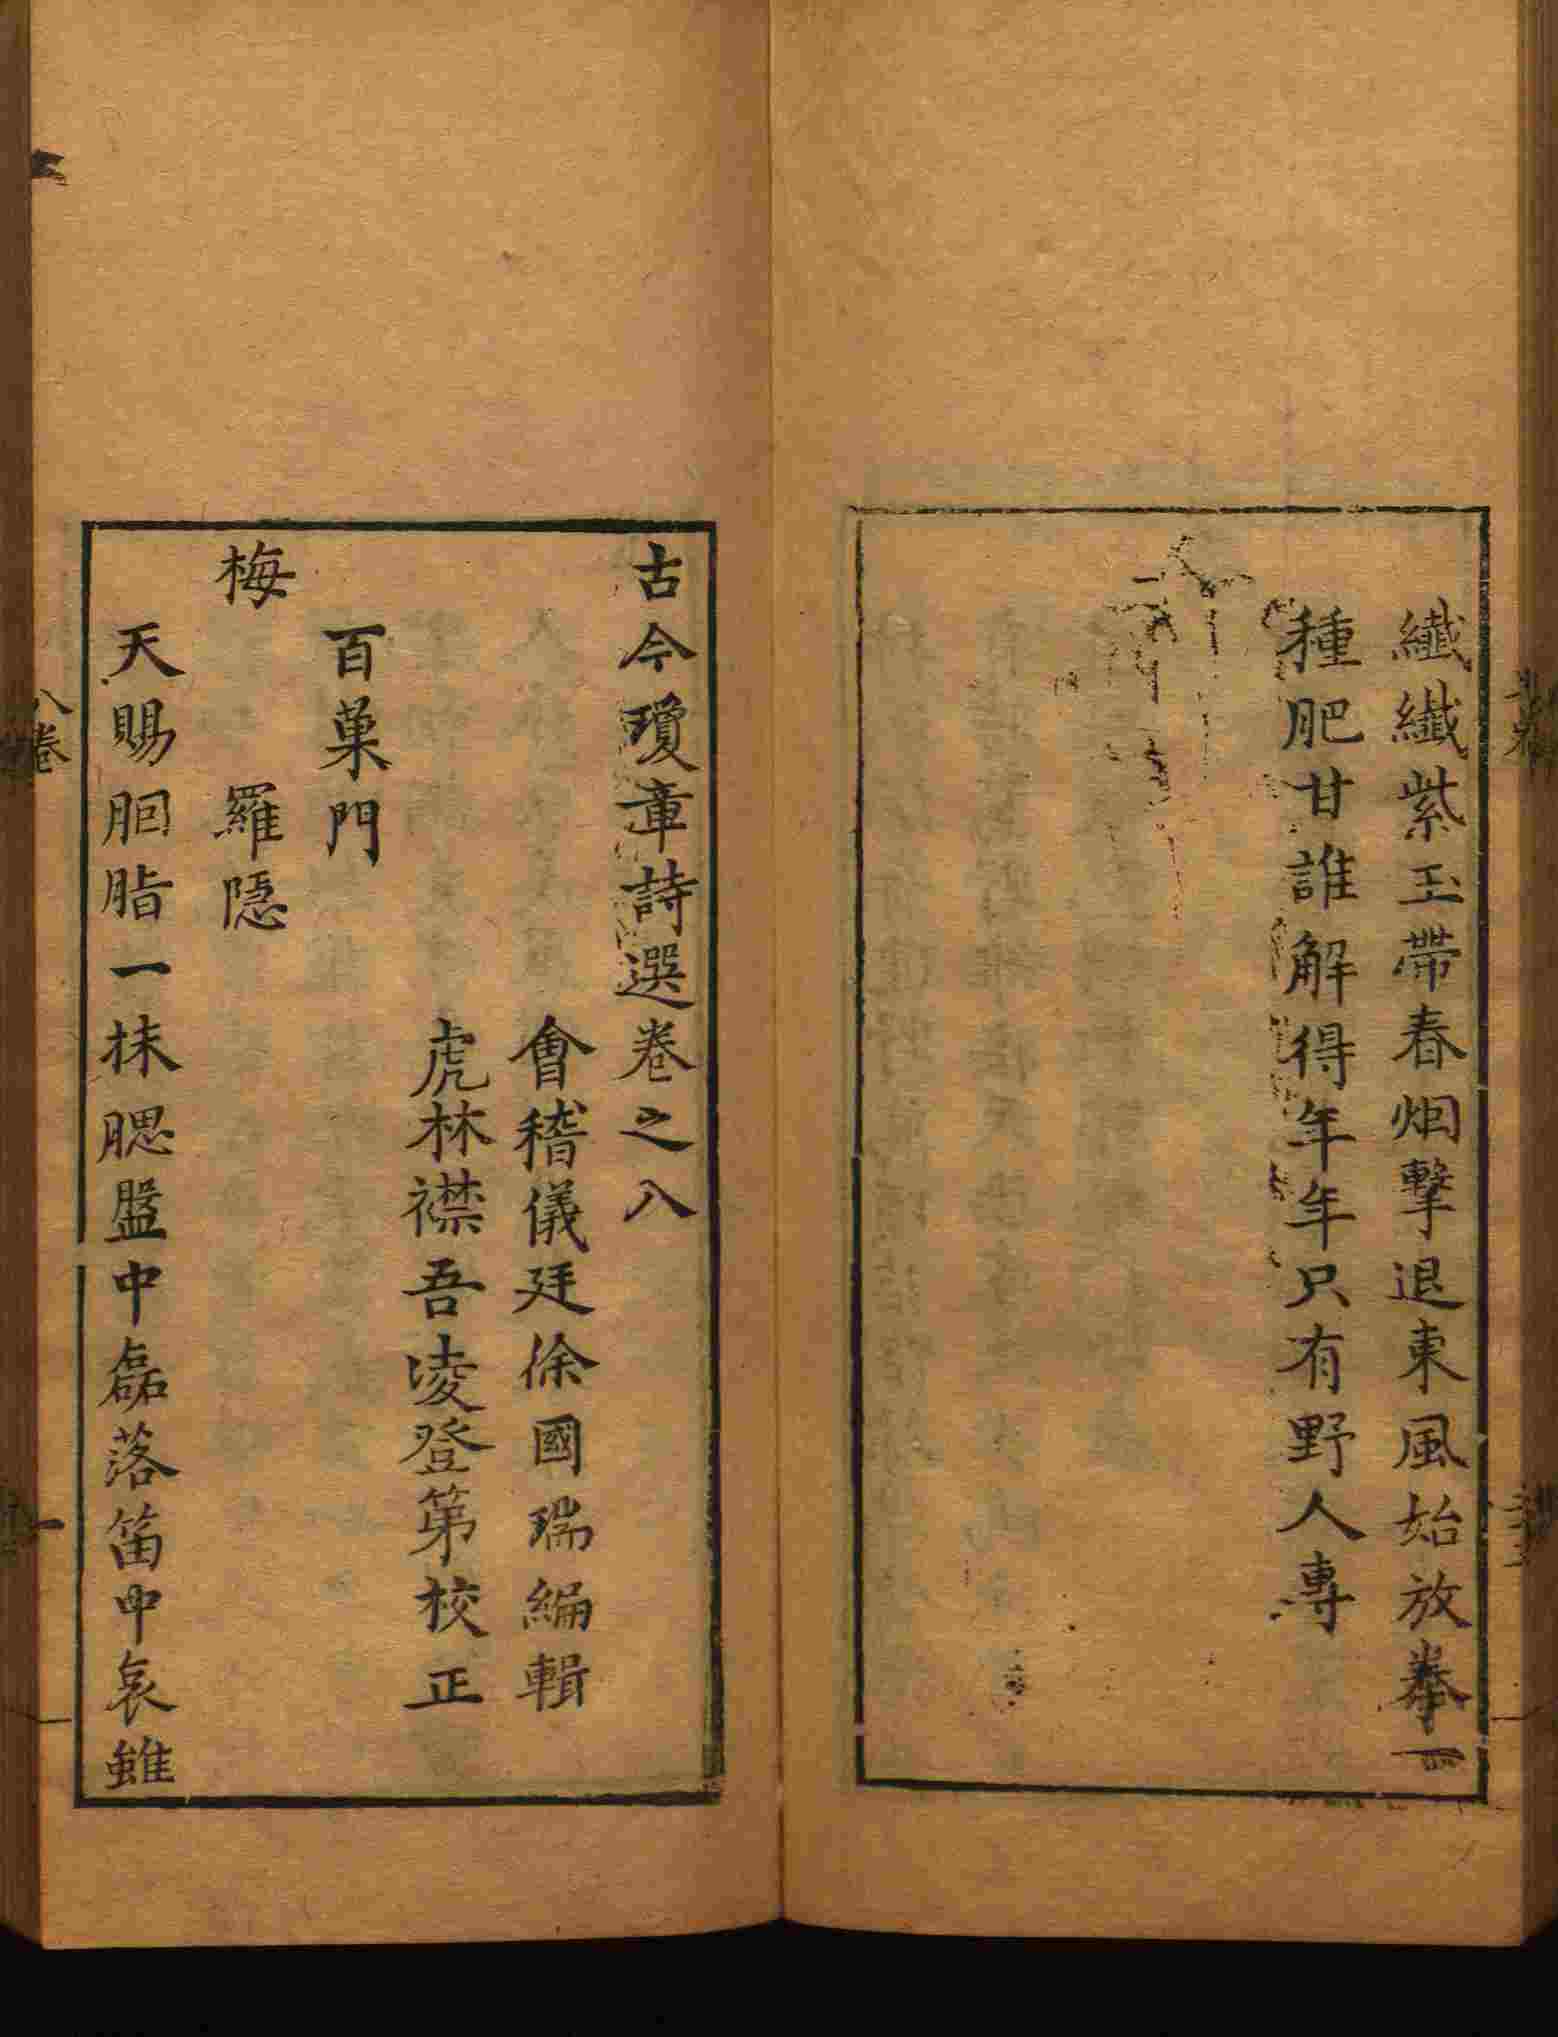 纎纎紫玉帶春烟擊退東風始放拳一
種肥甘誰解得年年只有野人專
古今瓊章詩選卷之八
會稽儀廷徐國瑞編輯
虎林襟吾凌登第校正
百菓門
梅
羅隱
天賜胭脂一抹腮盤中磊落笛中哀雖
八卷
一